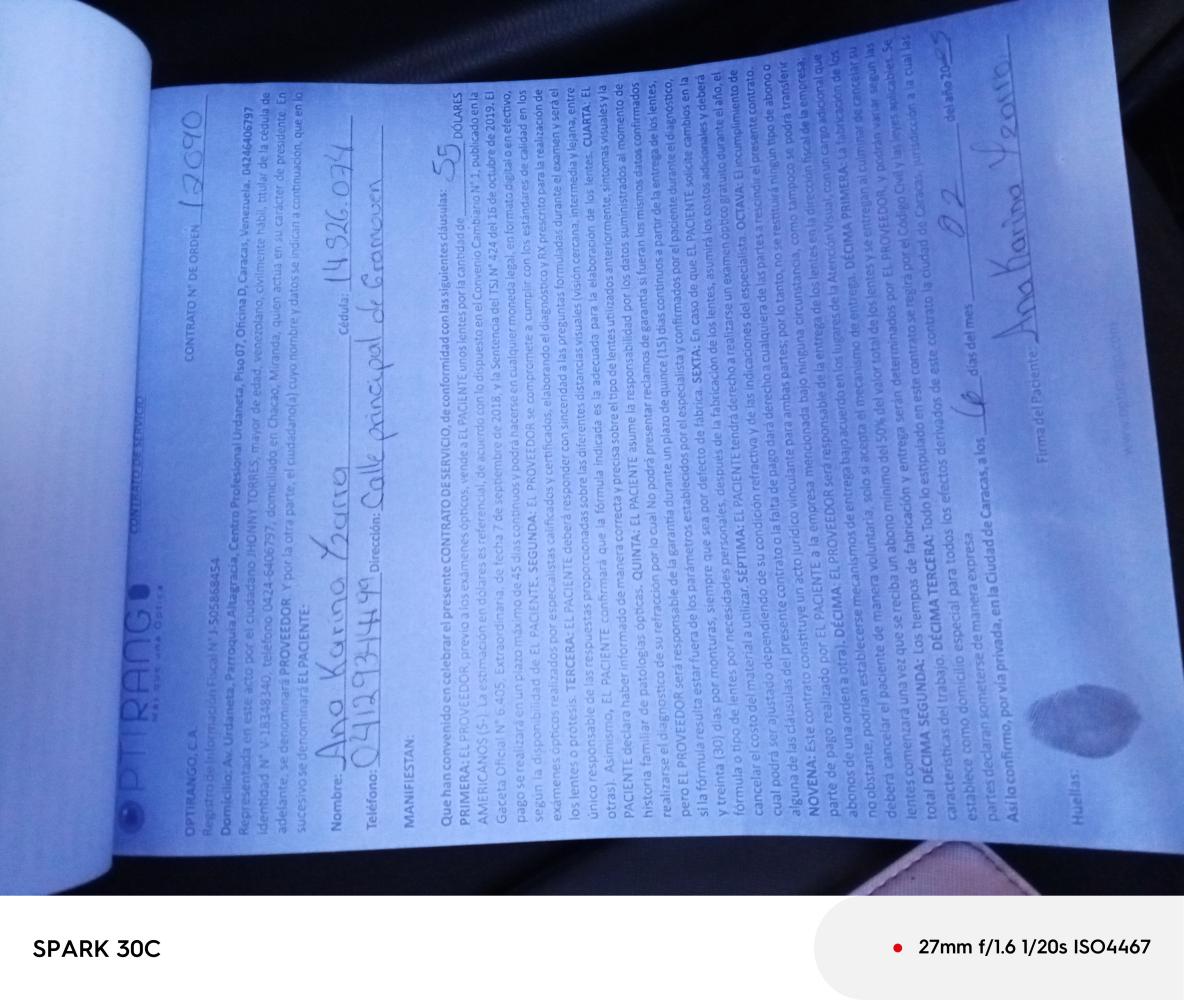 OPTIRANGO
MÁS QUE UNA ÓPTICA
CONTRATO DE SERVICIO
CONTRATO N° DE ORDEN 12690
OPTIRANGO, C.A.
Registro de Información Fiscal N° J-505868454
Domicilio: Av. Urdaneta, Parroquia Altagracia, Centro Profesional Urdaneta, Piso 07, Oficina D, Caracas, Venezuela. 04246406797
Representada en este acto por el ciudadano JHONNY TORRES, mayor de edad, venezolano, civilmente hábil, titular de la cédula de
Identidad N° V-18348340, teléfono 0424-6406797, domiciliado en Chacao, Miranda, quien actúa en su carácter de presidente. En
adelante, se denominará PROVEEDOR. Y por la otra parte, el ciudadano(a) cuyo nombre y datos se indican a continuación, que en lo
sucesivo se denominará EL PACIENTE:
Nombre: Ana Karina Yzarra Cédula: 14.926.074
Teléfono: 04129314499 Dirección: Calle principal de Gramoven
MANIFIESTAN:
Que han convenido en celebrar el presente CONTRATO DE SERVICIO, de conformidad con las siguientes cláusulas:
PRIMERA: EL PROVEEDOR, previo a los exámenes ópticos, vende a EL PACIENTE unos lentes por la cantidad de 55 DÓLARES
AMERICANOS ($-). La estimación en dólares es referencial, de acuerdo con lo dispuesto en el Convenio Cambiario N° 1, publicado en la
Gaceta Oficial N° 6.405. Extraordinaria, de fecha 7 de septiembre de 2018, y la Sentencia del TSJ N° 424 del 16 de octubre de 2019. El
pago se realizará en un plazo máximo de 45 días continuos y podrá hacerse en cualquier moneda legal, en formato digital o en efectivo,
según la disponibilidad de EL PACIENTE. SEGUNDA: EL PROVEEDOR se compromete a cumplir con los estándares de calidad en los
exámenes ópticos realizados por especialistas calificados y certificados, elaborando el diagnóstico y RX prescrito para la realización de
los lentes o prótesis. TERCERA: EL PACIENTE deberá responder con sinceridad a las preguntas formuladas durante el examen y será el
único responsable de las respuestas proporcionadas sobre las diferentes distancias visuales (visión cercana, intermedia y lejana, entre
otras). Asimismo, EL PACIENTE confirmará que la fórmula indicada es la adecuada para la elaboración de los lentes. CUARTA: EL
PACIENTE declara haber informado de manera correcta y precisa sobre el tipo de lentes utilizados anteriormente, síntomas visuales y la
historia familiar de patologías ópticas. QUINTA: EL PACIENTE asume la responsabilidad por los datos suministrados al momento de
realizarse el diagnostico de su refracción por lo cual No podrá presentar reclamos de garantía si fueran los mismos datos confirmados
pero EL PROVEEDOR será responsable de la garantía durante un plazo de quince (15) días continuos a partir de la entrega de los lentes,
si la fórmula resulta estar fuera de los parámetros establecidos por el especialista y confirmados por el paciente durante el diagnóstico,
y treinta (30) días por monturas, siempre que sea por defecto de fabrica. SEXTA: En caso de que EL PACIENTE solicite cambios en la
fórmula o tipo de lentes por necesidades personales, después de la fabricación de los lentes, asumirá los costos adicionales y deberá
cancelar el costo del material a utilizar. SÉPTIMA: EL PACIENTE tendrá derecho a realizarse un examen óptico gratuito durante el año, el
cual podrá ser ajustado dependiendo de su condición refractiva y de las indicaciones del especialista. OCTAVA: El incumplimiento de
alguna de las cláusulas del presente contrato o la falta de pago dará derecho a cualquiera de las partes a rescindir el presente contrato.
NOVENA: Este contrato constituye un acto jurídico vinculante para ambas partes; por lo tanto, no se reducirá ningún tipo de abono o
parte de pago realizado por EL PACIENTE a la empresa mencionada bajo ninguna circunstancia, como tampoco se podrá transferir
abonos de una orden a otra). DÉCIMA. EL PROVEEDOR será responsable de la entrega de los lentes en la dirección fiscal de la empresa;
no obstante, podrían establecerse mecanismos de entrega bajo acuerdo en los lugares de la Atención Visual, con un cargo adicional que
deberá cancelar el paciente de manera voluntaria, solo si acepta el mecanismo de entrega. DÉCIMA PRIMERA: La fabricación de los
lentes comenzará una vez que se reciba un abono mínimo del 50% del valor total de los lentes y se entregan al culminar de cancelar su
total DÉCIMA SEGUNDA: Los tiempos de fabricación y entrega serán determinados por EL PROVEEDOR, y podrán variar segun las
características del trabajo. DÉCIMA TERCERA: Todo lo estipulado en este contrato se regirá por el Código Civil y las leyes aplicables. Se
establece como domicilio especial para todos los efectos derivados de este contrato la ciudad de Caracas, jurisdicción a la cual las
partes declaran someterse de manera expresa
Así lo confirmo, por vía privada, en la Ciudad de Caracas, a los 6 días del mes 02 del año 2025
Firma del Paciente: Ana Karina Yzarra
Huellas:
SPARK 30C
27mm f/1.6 1/20s ISO4467